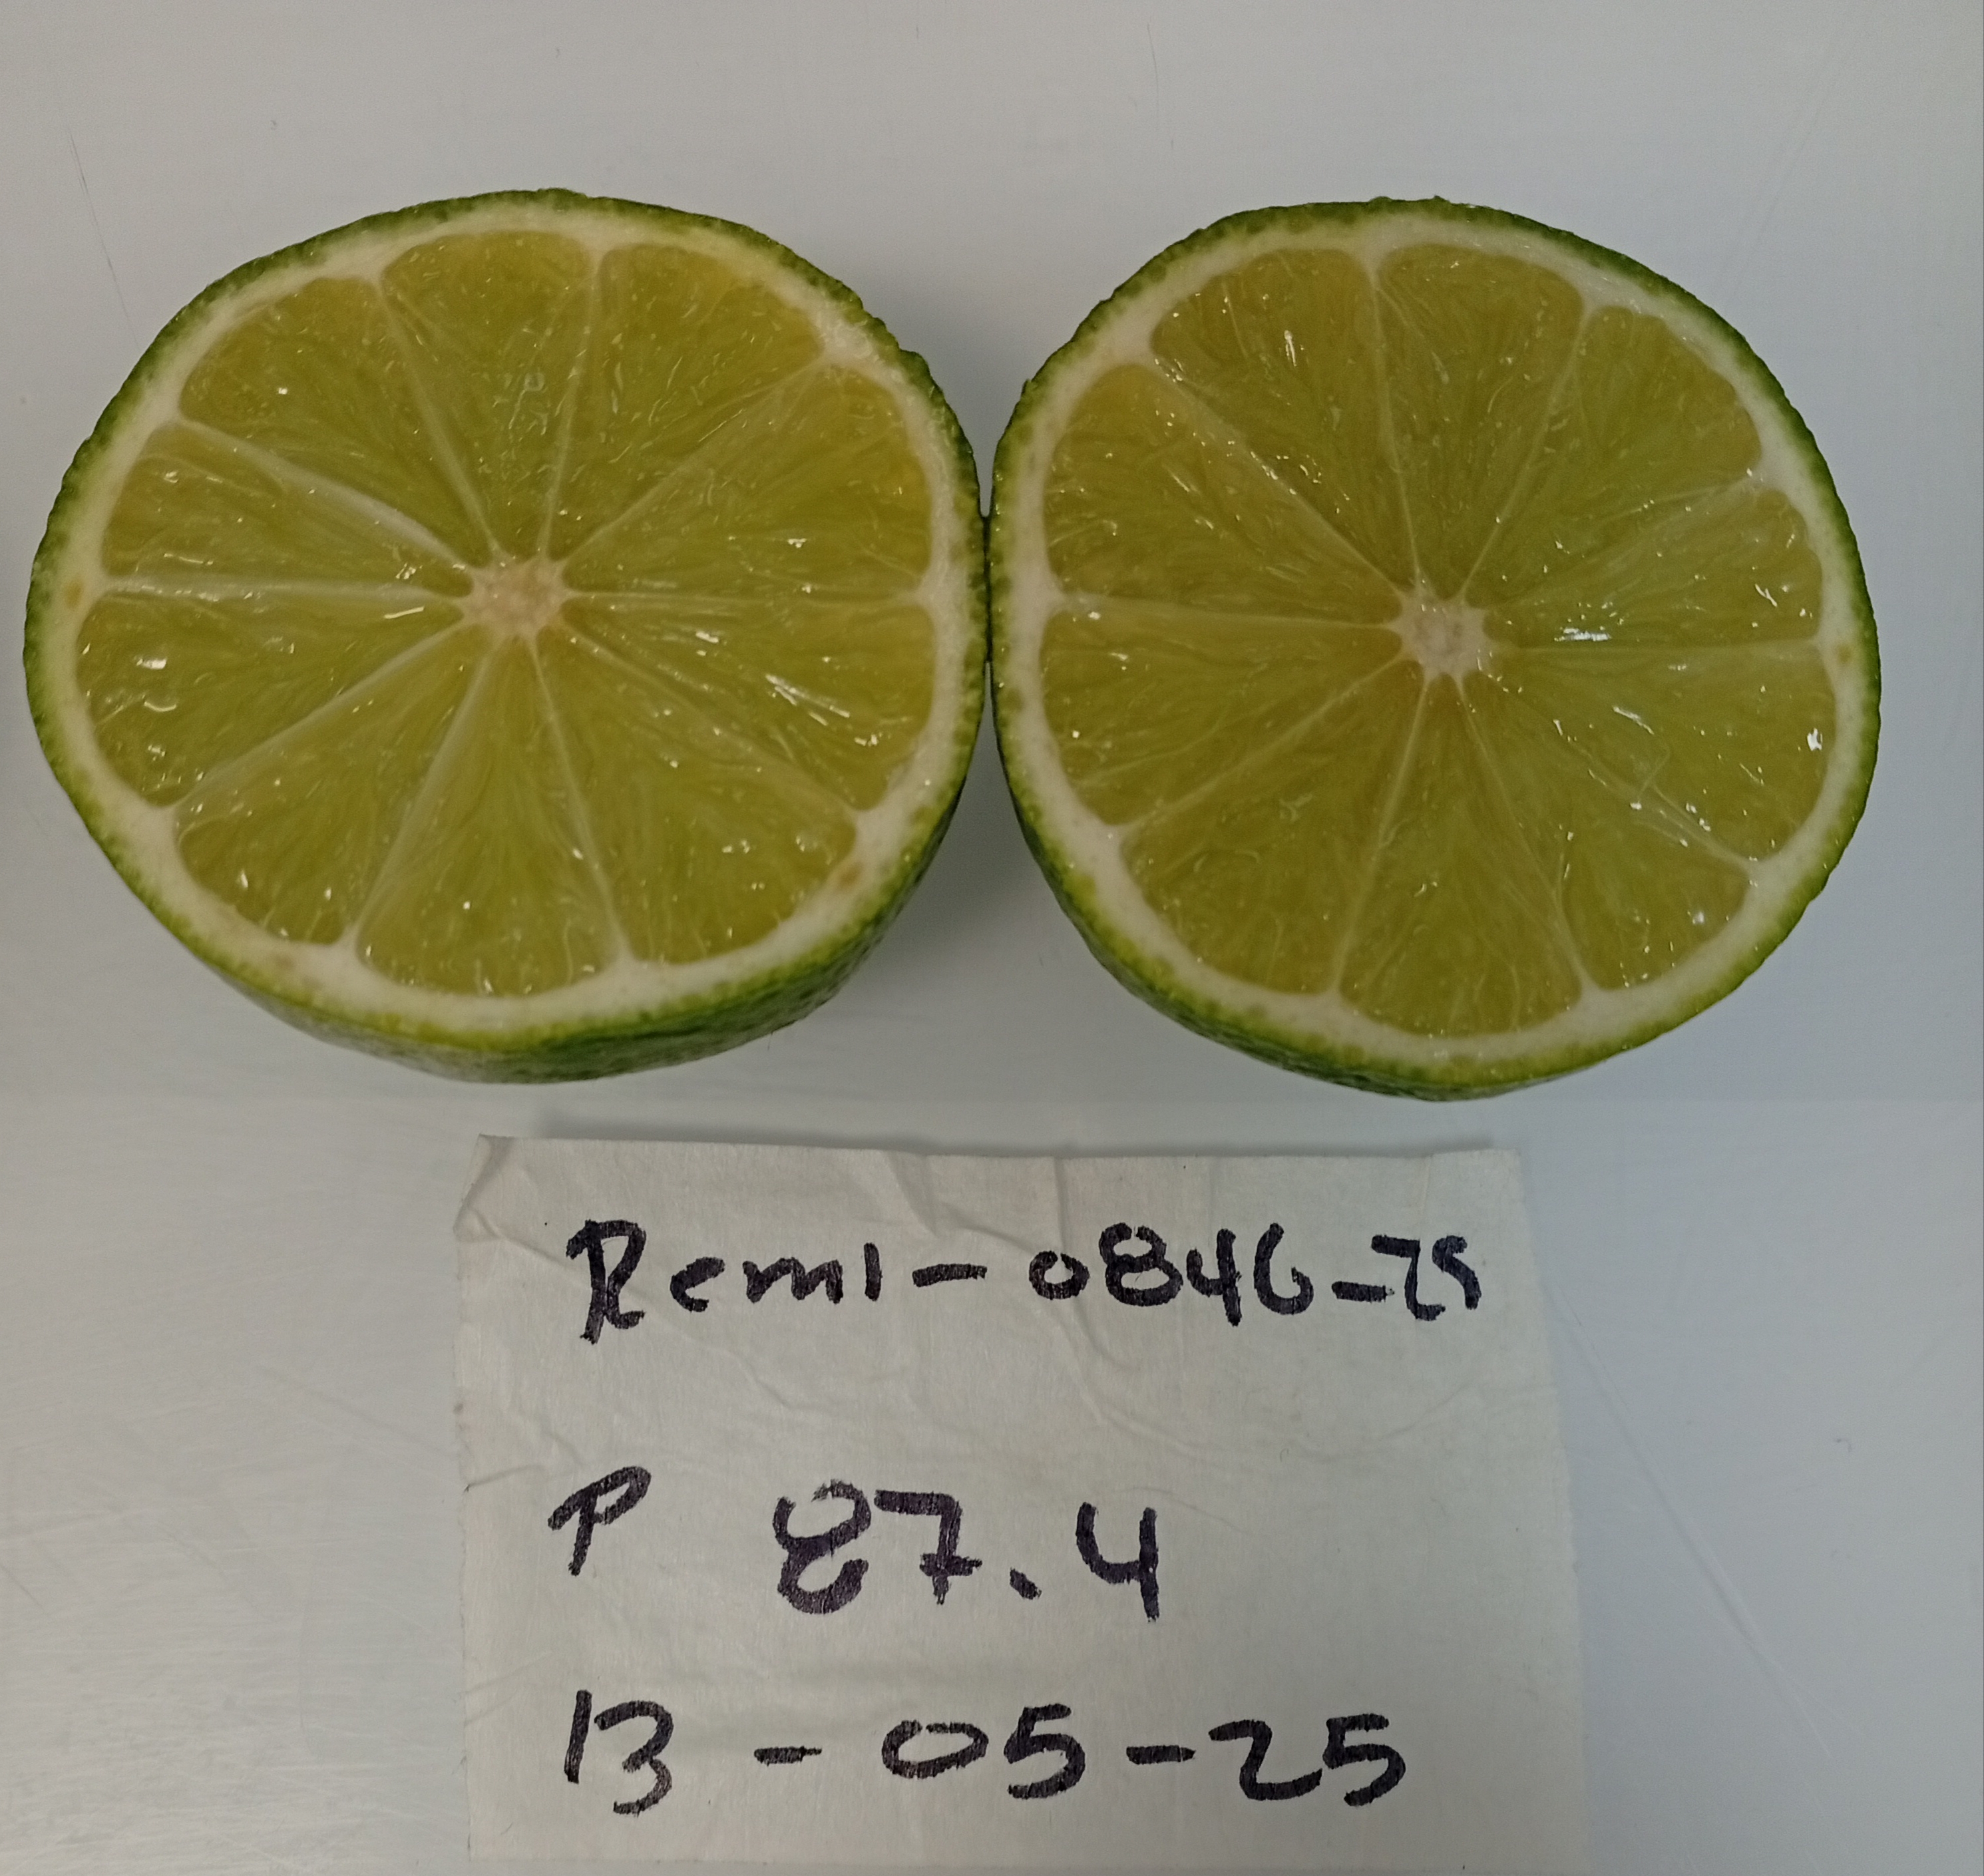 Remi-0846-25
P 87.4
13-05-25